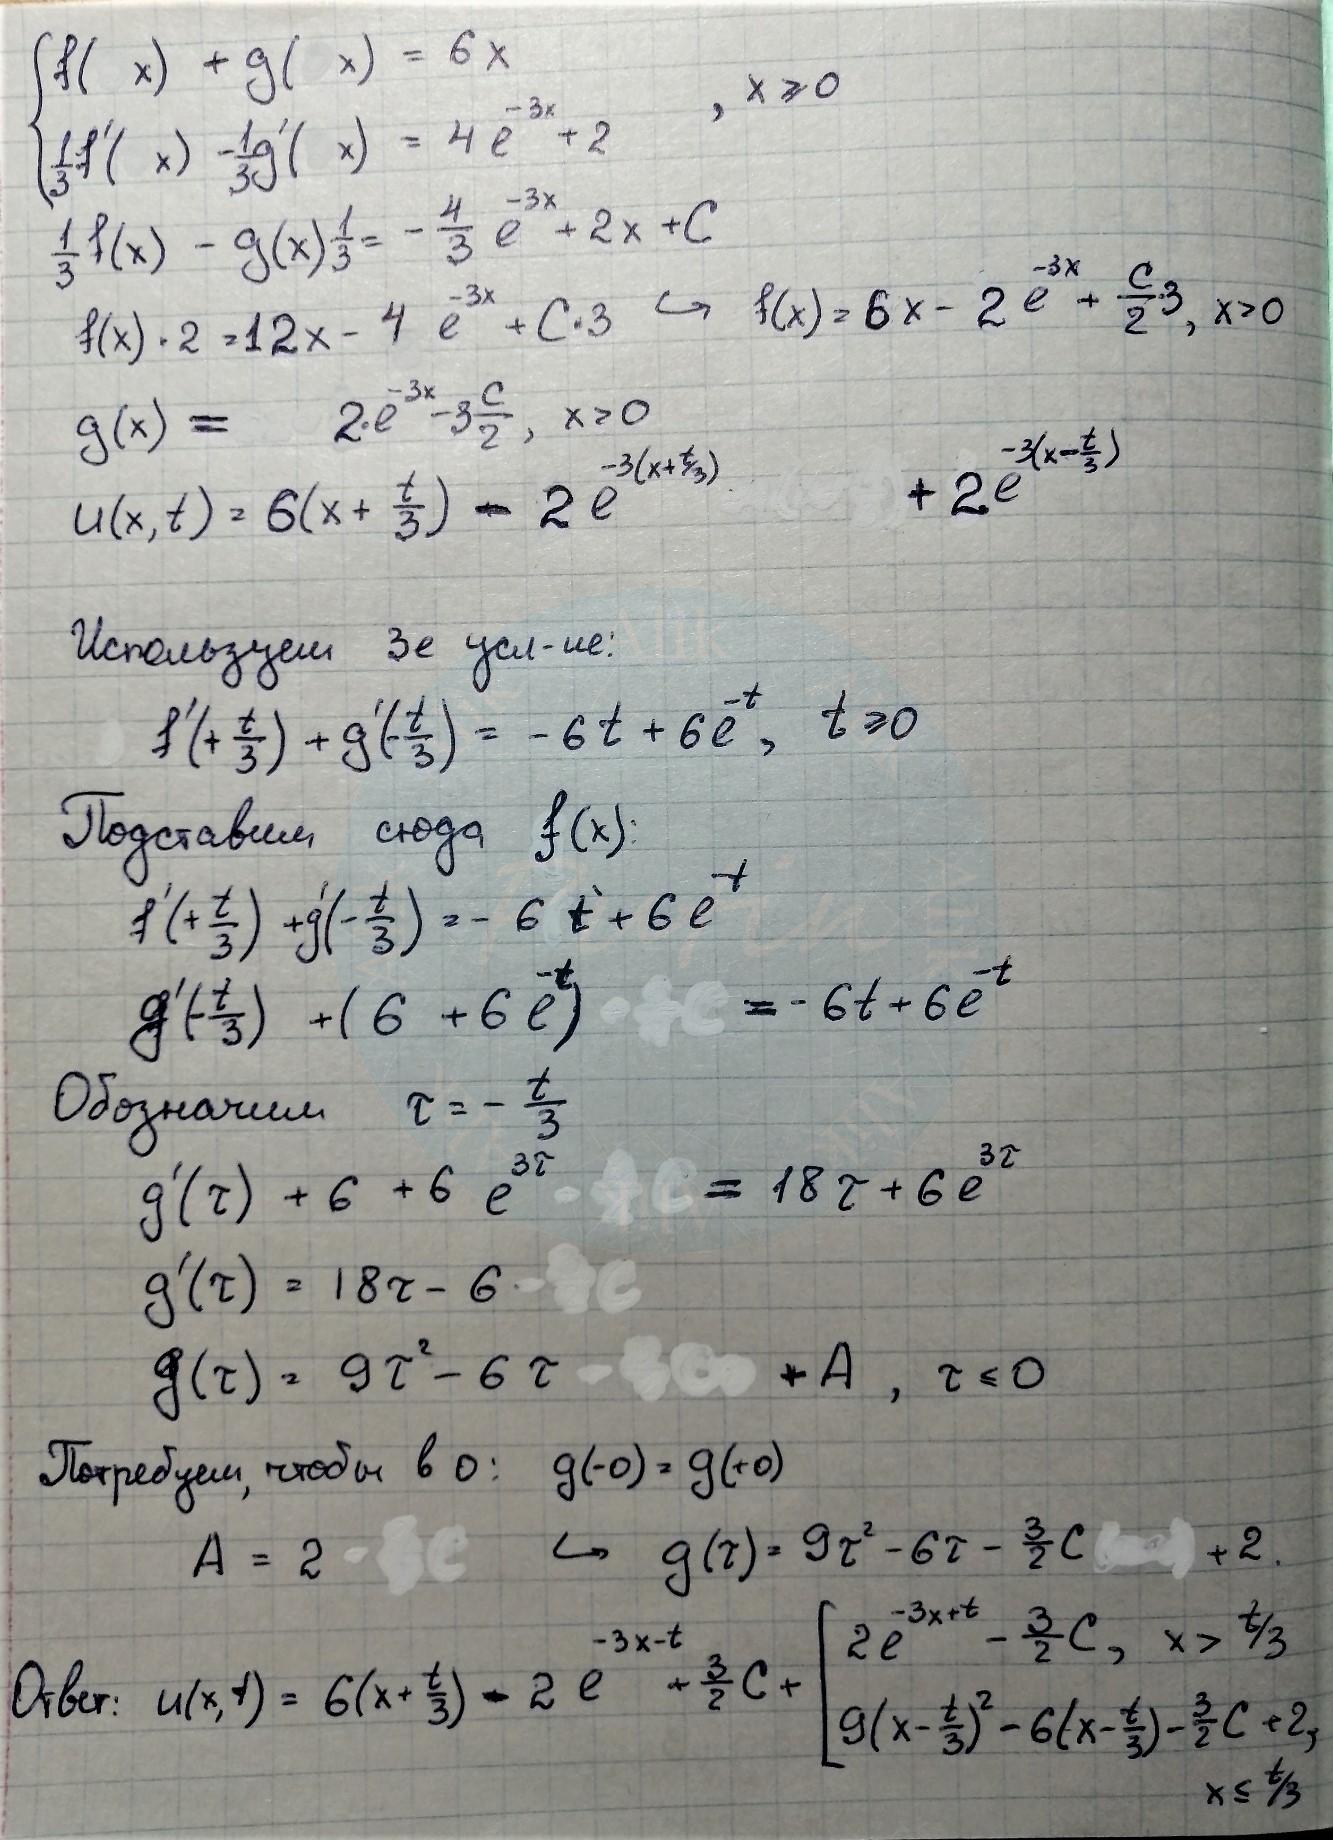 { f( x) + g( x) = 6x
{ 1/3 f'( x) - 1/3 g'( x) = 4e^{-3x} + 2 , x ≥ 0
1/3 f(x) - g(x) 1/3 = - 4/3 e^{-3x} + 2x + C
f(x)·2 = 12x - 4 e^{-3x} + C·3 ↪ f(x) = 6x - 2e^{-3x} + C/2·3, x>0
g(x) = 2·e^{-3x} - 3 C/2, x>0
u(x,t) = 6(x + t/3) - 2e^{-3(x+t/3)} + 2e^{-3(x-t/3)}
Используем 3е усл-ие:
f'(+t/3) + g'(-t/3) = -6t + 6e^{-t}, t ≥ 0
Подставим сюда f(x):
f'(+t/3) + g'(-t/3) = -6t + 6e^{-t}
g'(-t/3) + (6 + 6e^{-t}) = -6t + 6e^{-t}
Обозначим τ = - t/3
g'(τ) + 6 + 6 e^{3τ} = 18τ + 6e^{3τ}
g'(τ) = 18τ - 6
g(τ) = 9τ² - 6τ + A , τ ≤ 0
Потребуем, чтобы в 0: g(-0) = g(+0)
A = 2 ↪ g(τ) = 9τ² - 6τ - 3/2 C + 2.
Ответ: u(x,t) = 6(x + t/3) - 2e^{-3x-t} + 3/2 C + [ 2e^{-3x+t} - 3/2 C, x > t/3
9(x - t/3)² - 6(x - t/3) - 3/2 C + 2,
x ≤ t/3